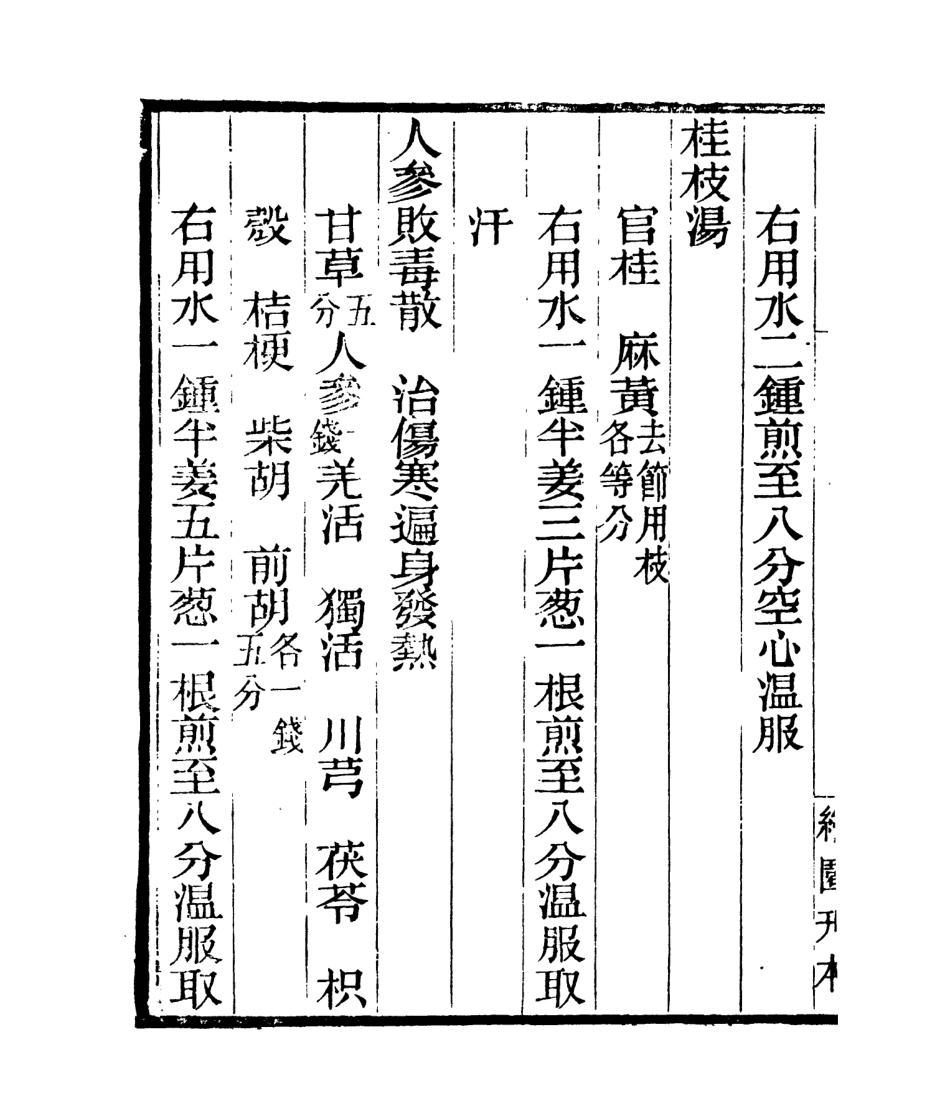 右用水二鍾煎至八分空心温服
桂枝湯
官桂　麻黃去節用枝各等分
右用水一鍾半姜三片葱一根煎至八分温服取
汗
人參敗毒散　治傷寒遍身發熱
甘草五分人參一錢羌活　獨活　川芎　茯苓　枳
殼　桔梗　柴胡　前胡各一錢五分
右用水一鍾半姜五片葱一根煎至八分温服取
園刋本